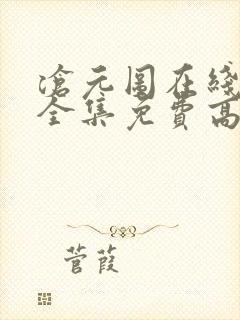 滄元图在綫
全集免費高
菅葭